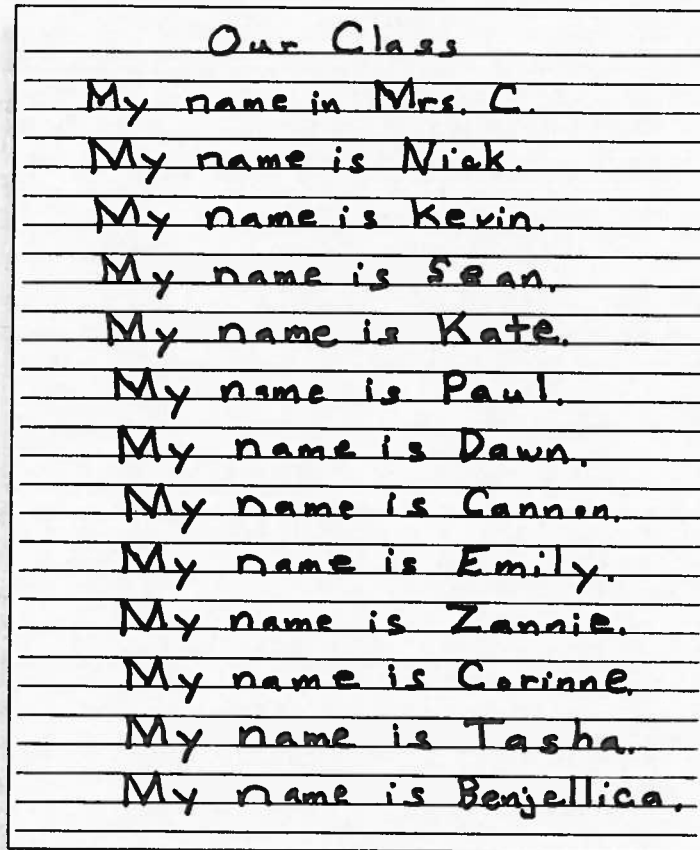 Our Class
My name in Mrs. C.
My name is Nick.
My name is Kevin.
My name is Sean.
My name is Kate.
My name is Paul.
My name is Dawn.
My name is Cannon.
My name is Emily.
My name is Zannie.
My name is Corinne.
My name is Tasha.
My name is Benjellica.